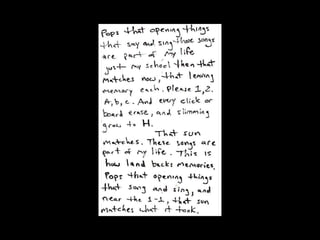 Pops that opening things
that say and sing those songs
are part of my life
just my school then that
matches now, that leaning
memory each. Please 1, 2.
A, b, c. And every click or
board erase, and slimming
grow to H.
That sun
matches. These songs are
part of my life. This is
how land backs memories.
Pops that opening things
that song and sing, and
near the 1-1, that son
matches what it took.